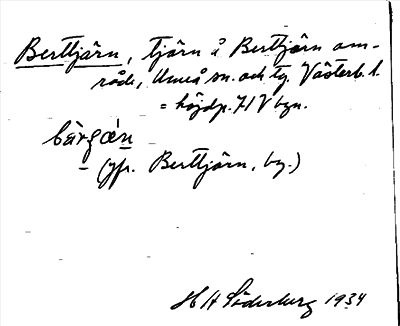 Berttjärn, tjärn å Berttjärn om-
råde, Umeå sn. och tg. Västerb. l.
= höjdp. 71 V byn.
bærgán
– (jfr. Berttjärn, by.)
H H Söderberg 1934